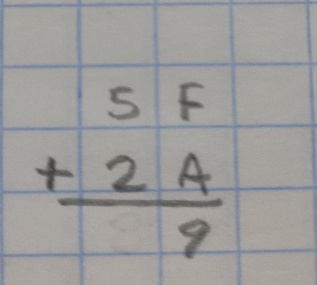 5 F
+ 2 A
9